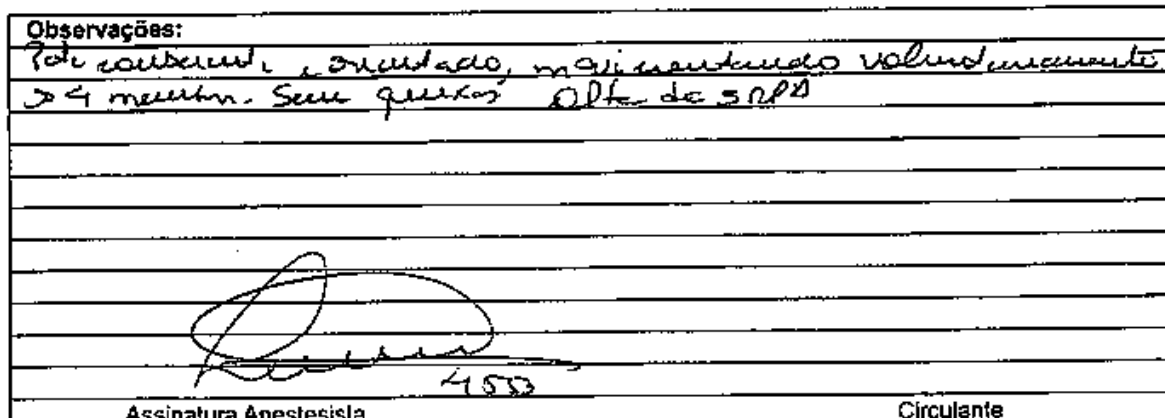 Observações:
Pcte consciente, orientado, movimentando voluntariamente
os 4 membros. Sem queixas Alta da SRPA
Assinatura Anestesista
Circulante